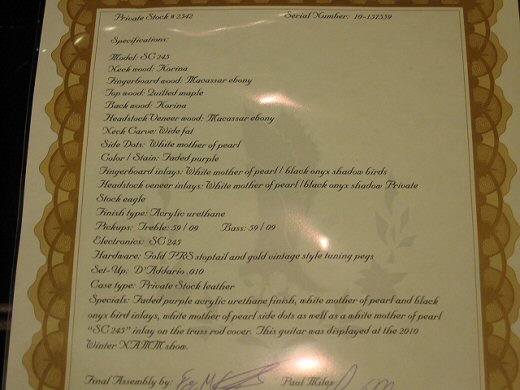 Private Stock # 2542 Serial Number: 10-157559
Specifications:
Model: SC 245
Neck wood: Korina
Fingerboard wood: Macassar ebony
Top wood: Quilted maple
Back wood: Korina
Headstock Veneer wood: Macassar ebony
Neck Carve: Wide fat
Side Dots: White mother of pearl
Color / Stain: Faded purple
Fingerboard inlays: White mother of pearl / black onyx shadow birds
Headstock veneer inlays: White mother of pearl /black onyx shadow Private
Stock eagle
Finish type: Acrylic urethane
Pickups: Treble: 59 / 09 Bass: 59 / 09
Electronics: SC 245
Hardware: Gold PRS stoptail and gold vintage style tuning pegs
Set-Up: D'Addario .010
Case type: Private Stock leather
Specials: Faded purple acrylic urethane finish, white mother of pearl and black
onyx bird inlays, white mother of pearl side dots as well as a white mother of pearl
"SC 245" inlay on the truss rod cover. This guitar was displayed at the 2010
Winter NAMM show.
Final Assembly by: Paul Miles